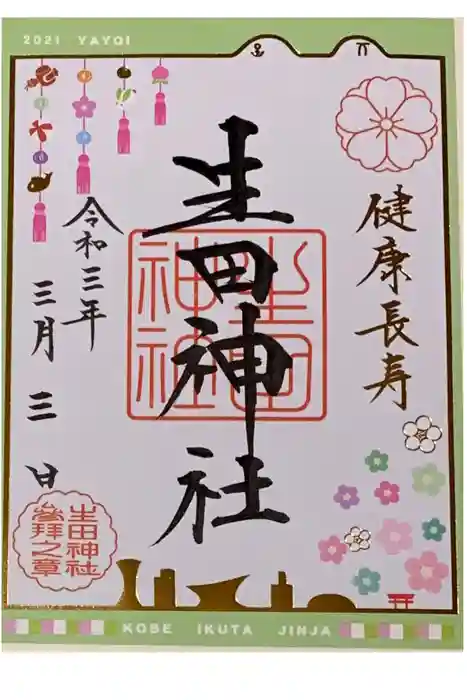 2021 YAYOI
健康長寿
生田神社
生田神社
令和三年
三月三日
生田神社
參拜之章
KOBE IKUTA JINJA